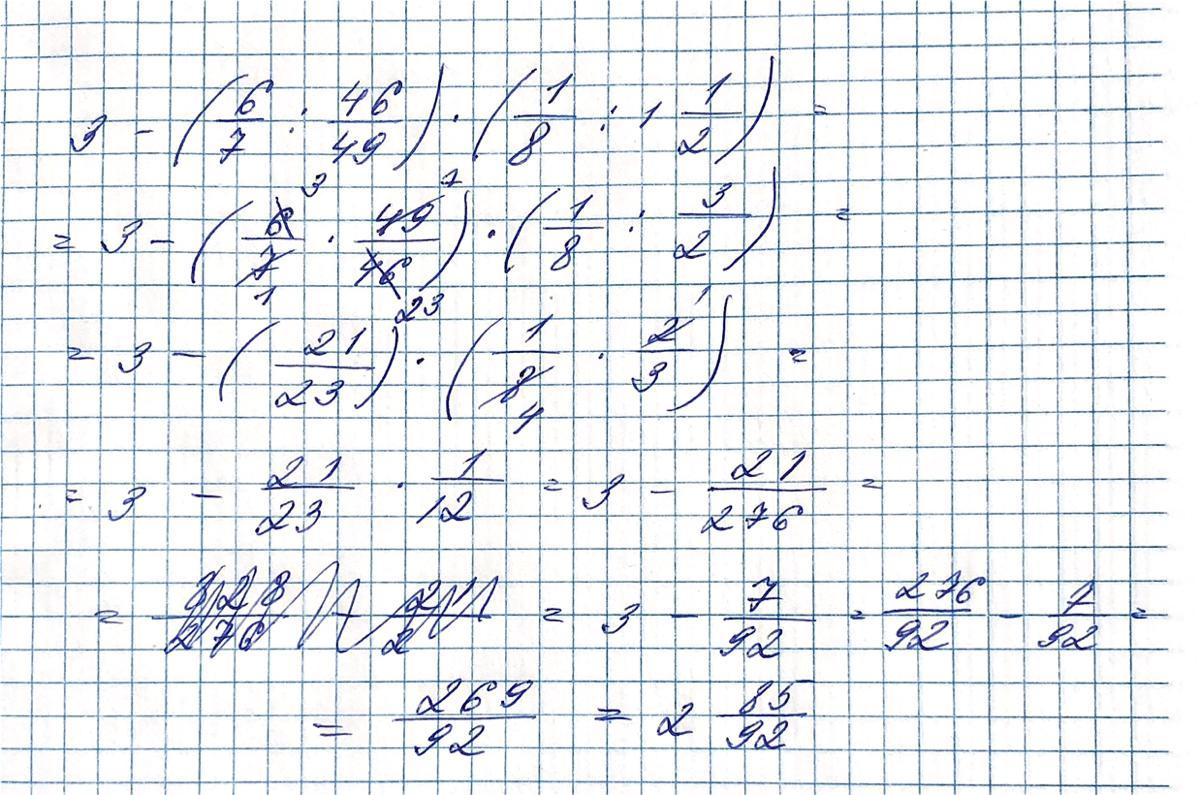 3 - (6/7 : 46/49) · (1/8 : 1 1/2) =
= 3 - (6/7 · 49/46) · (1/8 : 3/2) =
3 7 1 23
= 3 - (21/23) · (1/8 · 2/3) =
1 4
= 3 - 21/23 · 1/12 = 3 - 21/276 =
= = 3 - 7/92 = 276/92 - 7/92 =
= 269/92 = 2 85/92